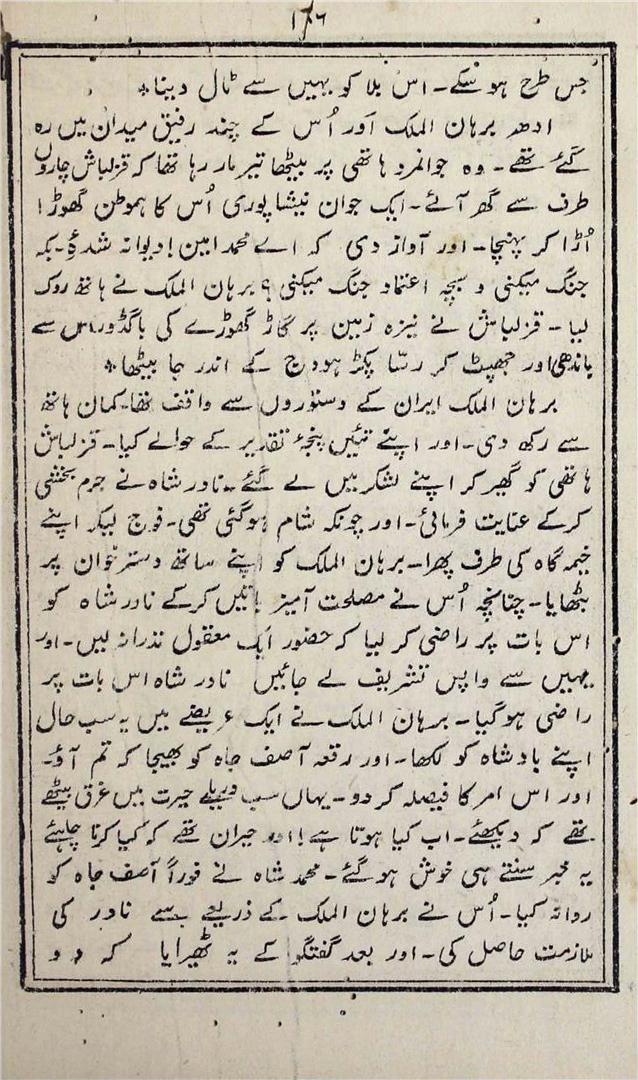 ۱۷۶
جس طرح ہو سکے۔ اس بلا کو یہیں سے ٹال دینا*
ادھر برہان الملک اَور اُس کے چند رفیق میدان میں رہ
گئے تھے۔ وہ جوانمرد ہاتھی پر بیٹھا تیر مار رہا تھا کہ قزلباش چاروں
طرف سے گھر آئے۔ ایک جوان نیشاپوری اُس کا ہموطن گھوڑا
اُڑا کر پہنچا۔ اور آواز دی کہ اے محمد امین! دیوانہ شدۂ۔ بکہ
جنگ میکنی و بہ چہ اعتماد جنگ میکنی ؟ برہان الملک نے ہاتھ روک
لیا۔ قزلباش نے نیزہ زمین پر گاڑ گھوڑے کی باگڈور اس سے
باندھی اور جھپٹ کر رسّا پکڑ ہودج کے اندر جا بیٹھا*
برہان الملک ایران کے دستوروں سے واقف تھا۔ کمان ہاتھ
سے رکھ دی۔ اور اپنے تئیں پنجۂ تقدیر کے حوالے کیا۔ قزلباش
ہاتھی کو گھیر کر اپنے لشکر میں لے گئے۔ نادر شاہ نے جرم بخشی
کرکے عنایت فرمائی۔ اور چونکہ شام ہوگئی تھی۔ فوج لیکر اپنے
خیمہ گاہ کی طرف پھرا۔ برہان الملک کو اپنے ساتھ دسترخوان پر
بٹھایا۔ چنانچہ اُس نے مصلحت آمیز باتیں کرکے نادر شاہ کو
اس بات پر راضی کر لیا کہ حضور ایک معقول نذرانہ لیں۔ اور
یہیں سے واپس تشریف لے جائیں نادر شاہ اس بات پر
راضی ہوگیا۔ برہان الملک نے ایک عریضے میں یہ سب حال
اپنے بادشاہ کو لکھا۔ اور رقعہ آصف جاہ کو بھیجا کہ تم آؤ۔
اور اس امر کا فیصلہ کر دو۔ یہاں سب حیرت میں غرق بیٹھے
تھے کہ دیکھئے۔ اب کیا ہوتا ہے! اور حیران تھے کہ کیا کرنا چاہئے
یہ خبر سنتے ہی خوش ہوگئے۔ محمد شاہ نے فوراً آصف جاہ کو
روانہ کیا۔ اُس نے برہان الملک کے ذریعے سے نادر کی
ملازمت حاصل کی۔ اور بعد گفتگو کے یہ ٹھیرایا کہ دو